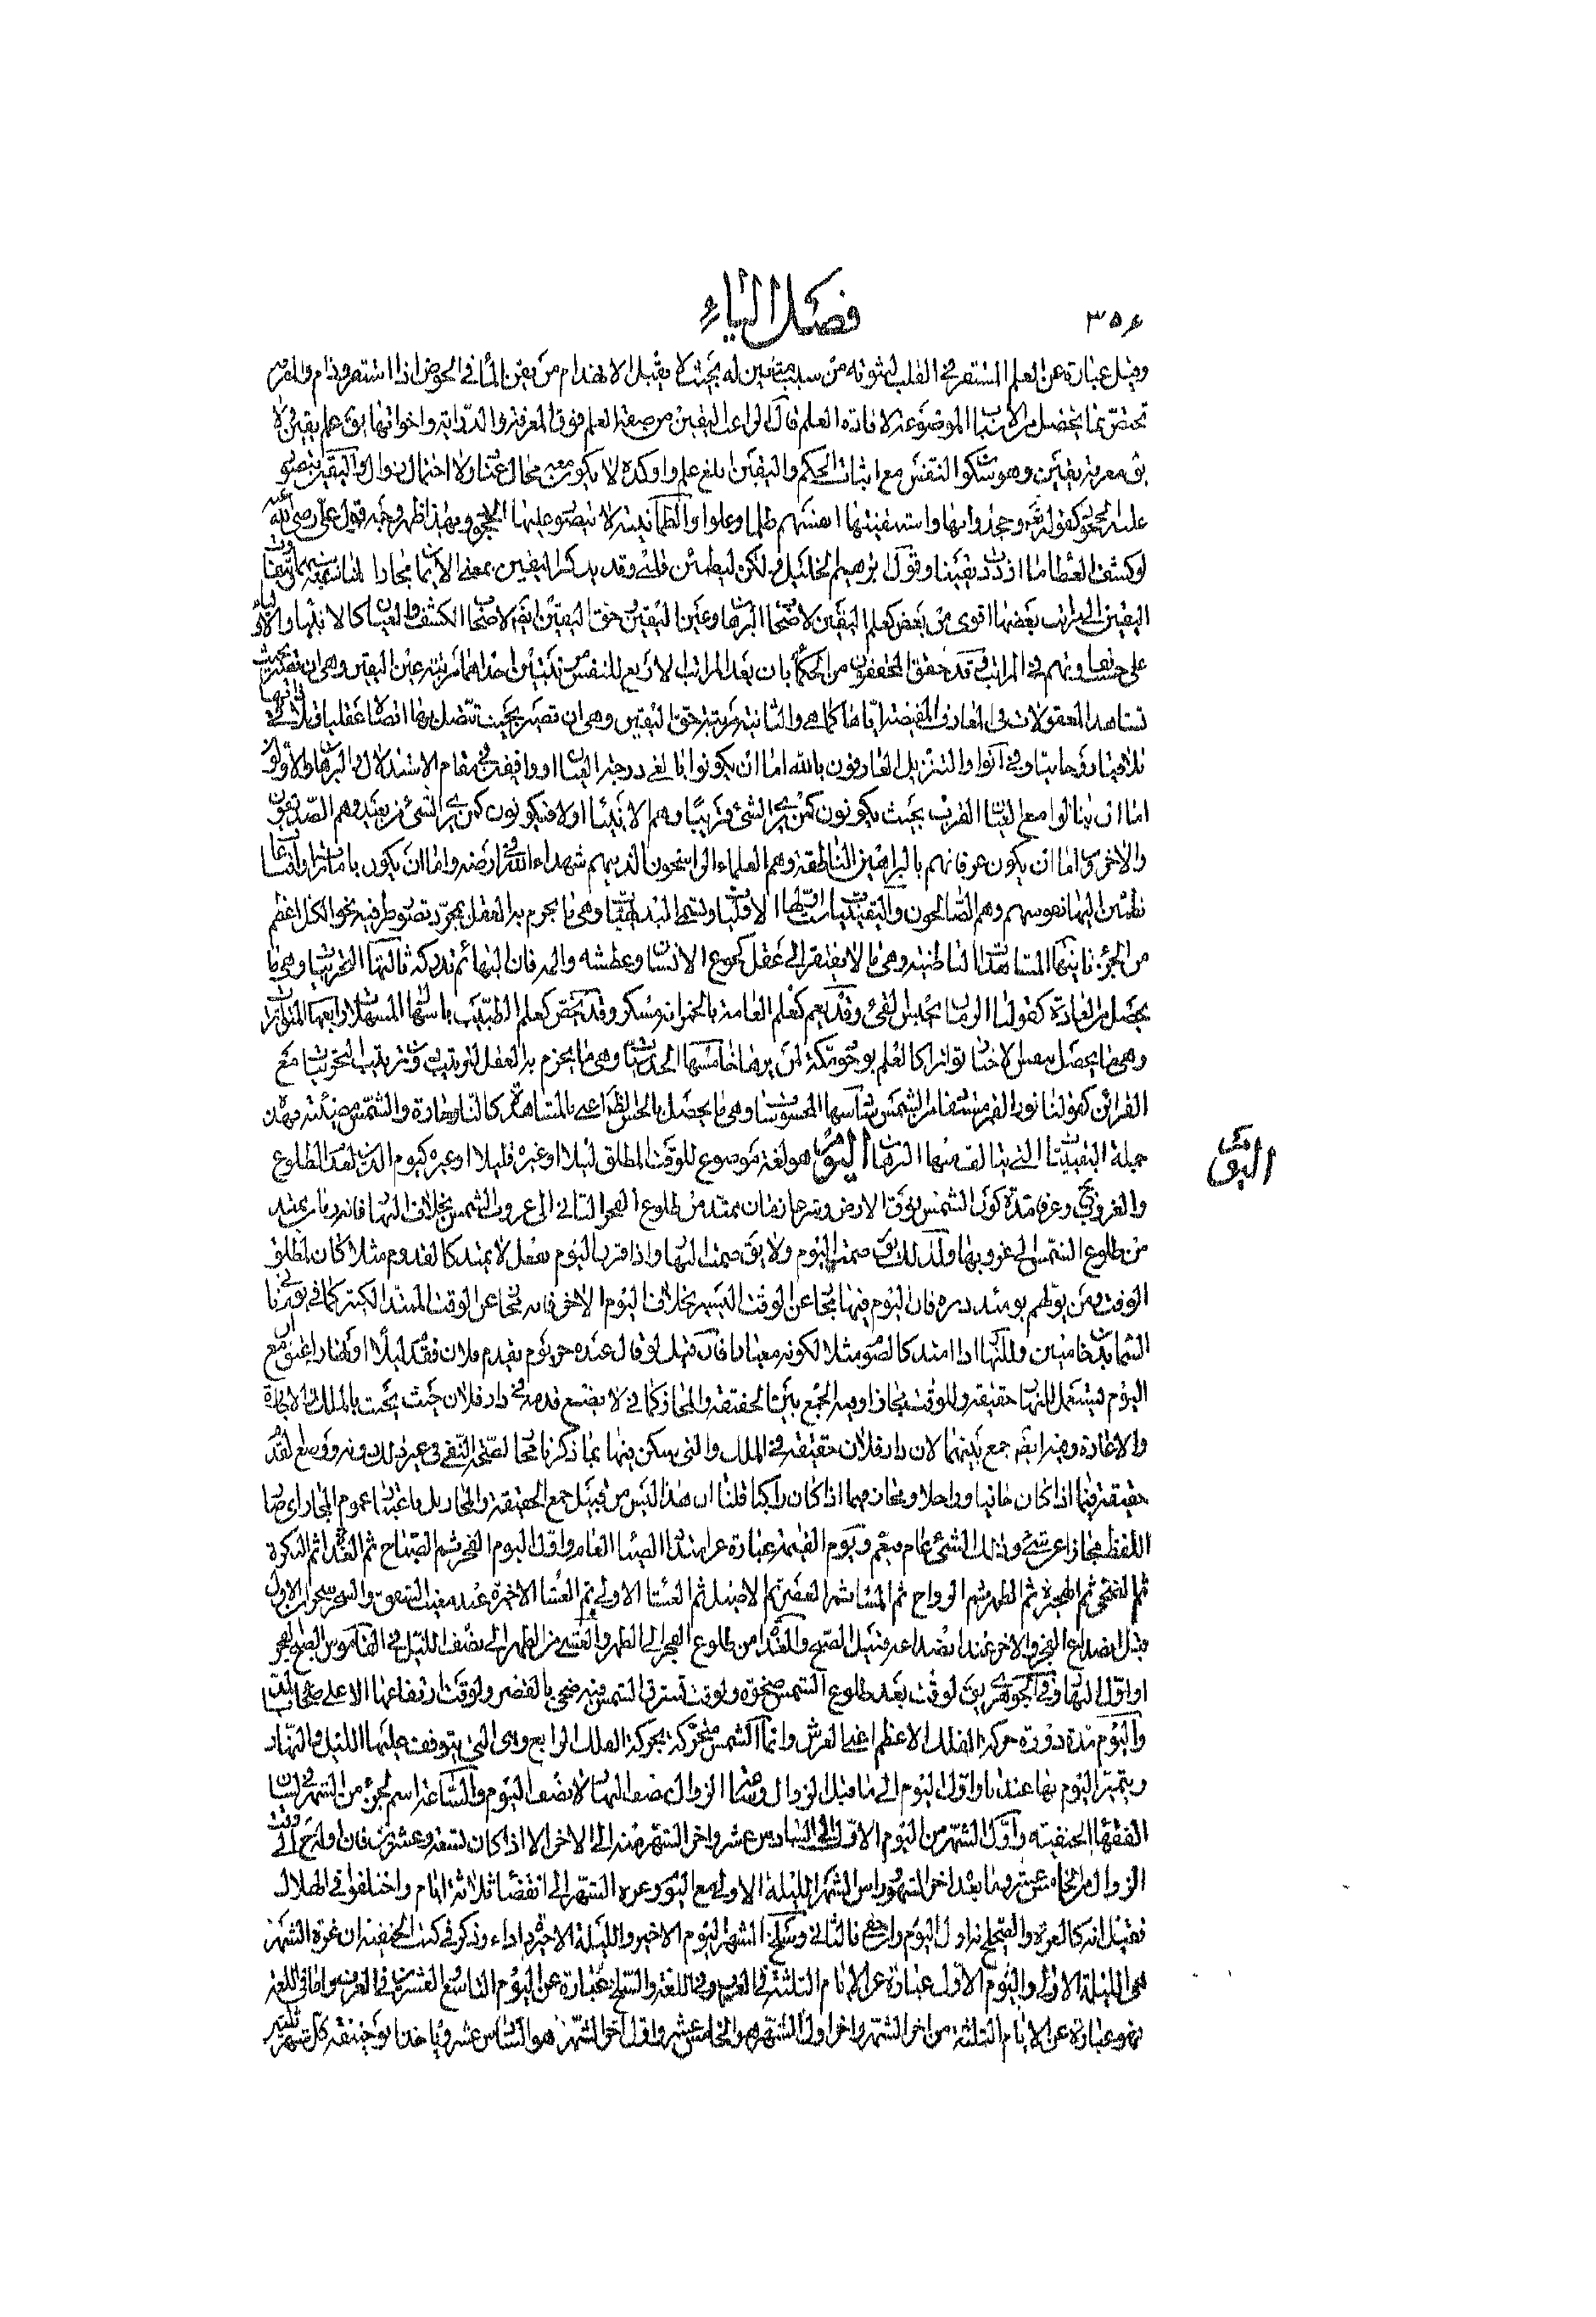 ٣٥٤
فصل الياء
وقيل عبارة عن العلم المستقر في القلب لثبوته من سبب متعين له بحيث لا يقبل الانهدام من يقن الماء في الحوض اذا استقر ودام والمعرفة
تختص بما يحصل من الاسباب الموضوعة لافادة العلم قال الراغب اليقين من صفة العلم فوق المعرفة والدراية واخواتها يق علم يقين ولا
يق معرفة يقين وهو سكون النفس مع اثبات الحكم واليقين ابلغ علم واوكده لا يكون معه مجال عناد ولا احتمال زوال واليقين يتصور
عليه الجحود كقوله تعالى وجحدوا بها واستيقنتها انفسهم ظلما وعلوا والطمأنينة لا يتصور عليها الجحود وبهذا ظهر وجه قول علي رضي الله عنه
لو كشف الغطاء ما ازددت يقينا وقول ابرهيم الخليل ولكن ليطمئن قلبي وقد يذكر اليقين بمعنى الايمان مجازا لمناسبة بينهما وتفاوت
اليقين الى مراتب بعضها اقوى من بعض كعلم اليقين لاصحاب البرهان وعين اليقين وحق اليقين ايضا لاصحاب الكشف والعيان كالانبياء والاولياء
على حسب تفاوتهم في المراتب وقد حقق المحققون من الحكماء بان بعد المراتب الاربع للنفس مرتبتين احداهما مرتبة عين اليقين وهي ان تصير بحيث
تشاهد المعقولات في المعارف المفيضة اياها كما هي والثانية مرتبة حق اليقين وهي ان تصير بحيث تتصل بها اتصالا عقليا وتلاقي ذاتها
تلاقيا روحانيا وفي انوار التنزيل العارفون بالله اما ان يكونوا بالغي درجة العيان او واقفين في مقام الاستدلال والبرهان والاولون
اما ان ينالوا مع العيان القرب بحيث يكونون كمن يرى الشئ قريبا وهم الانبياء او لا فيكونون كمن يرى الشئ من بعيد وهم الصديقون
والاخرون اما ان يكون عرفانهم بالبراهين القاطعة وهم العلماء الراسخون الذين هم شهداء الله في ارضه واما ان يكون بامارات واقناعات
تطمئن اليها نفوسهم وهم الصالحون واليقينيات ست اولها الاوليات وتسمى البديهيات وهي ما يجزم به العقل بمجرد تصور طرفيه نحو الكل اعظم
من الجزء ثانيها المشاهدات الباطنية وهي ما لا يفتقر الى عقل كجوع الانسان وعطشه والمه فان البهائم تدركه ثالثها التجربيات وهي ما
يحصل من العادة كقولنا الرمان يحبس القئ وقد يعم كعلم العامة بالخمر انه مسكر وقد يخص كعلم الطبيب باسهال المسهلات رابعها المتواترات
وهي ما يحصل بنفس الاخبار تواترا كالعلم بوجود مكة لمن لم يرها خامسها الحدسيات وهي ما يجزم به العقل لترتيب دون ترتيب التجربيات مع
القرائن كقولنا نور القمر مستفاد من الشمس سادسها المحسوسات وهي ما يحصل بالحس الظاهر اعني بالمشاهدة كالنار حارة والشمس مضيئة فهذه
جملة اليقينيات التي يتالف منها البرهان اليوم هو لغة موضوع للوقت المطلق ليلا او غيره قليلا او غيره كيوم الدين لعدم الطلوع
اليوم
والغروب وعرفا مدة كون الشمس فوق الارض وشرعا زمان ممتد من طلوع الفجر الثاني الى غروب الشمس بخلاف النهار فانه زمان ممتد
من طلوع الشمس الى غروبها ولذلك يق صمت اليوم ولا يق صمت النهار واذا قرن اليوم بفعل لا يمتد كالقدوم مثلا كان لمطلق
الوقت ومن يولهم يومئذ دبره فان اليوم فيها مجاز عن الوقت اليسير بخلاف اليوم الاخر فانه مجاز عن الوقت الممتد الكثير كما في يومنا
والنهار اذا امتد كالصوم مثلا لكونه معيارا فان قيل لو قال عبده حر يوم يقدم فلان فقدم ليلا او نهارا عتق مع ان
اليوم يستعمل للنهار حقيقة وللوقت مجازا وفيه الجمع بين الحقيقة والمجاز كما في لا يضع قدمه في دار فلان حيث يحنث بالملك والاجارة
والاعارة وفيه ايضا جمع بينهما لان دار فلان حقيقة في الملك والتي يسكن فيها بما ذكرنا مجاز لصحة النفي في غيره دونه ووضع القدم
حقيقة فيما اذا كان حافيا وداخلا ومجاز فيما اذا كان راكبا قلنا ان هذا ليس من قبيل جمع الحقيقة والمجاز بل باعتبار عموم المجاز اي صار
اللفظ مجازا عن شئ وذلك الشئ عام فيعم ويوم القيمة عبارة عن امتداد الضياء العام واول اليوم الفجر ثم الصباح ثم الغداة ثم البكرة
ثم الضحى ثم الهجيرة ثم الظهر ثم الرواح ثم المساء ثم العصر ثم الاصيل ثم العشاء الاولى ثم العشاء الاخيرة عند مغيب الشفق والسحر سحران الاول
قبل انصداع الفجر والاخر عند انصداعه قبيل الصبح والغداة من طلوع الفجر الى الظهر والعشي من الظهر الى نصف الليل وفي القاموس الصبح الفجر
او اول النهار وفي الجوهري يق لوقت بعد طلوع الشمس ضحوة ولوقت تشرق الشمس فيه ضحى بالقصر ولوقت ارتفاعها الاعلى ضحاء بالمد
واليوم مدة دورة حركة الفلك الاعظم اعني العرش وانما الشمس متحركة بحركة الفلك الرابع وهي التي يتوقف عليها الليل والنهار
ويتميز اليوم بها عندنا واول اليوم الى ما قبل الزوال ومنها الزوال نصف النهار لا نصف اليوم والساعة اسم لجزء من الشهر في لسان
الفقهاء الحنفية واول الشهر من اليوم الاول الى السادس عشر واخر الشهر منه الى الاخر الا اذا كان تسعة وعشرين فان اوله ح الى وقت
الزوال من الخامس عشر وما بعد اخر الشهر وراس الشهر الليلة الاولى مع اليوم وغرة الشهر الى انقضاء ثلاثة ايام واختلفوا في الهلال
فقيل انه كالغرة والصحيح انه اول اليوم وان خفي فالثاني وسلخ الشهر اليوم الاخير والليلة الاخيرة اداء وذكر في كتب الحنفية ان غرة الشهر
هي الليلة الاولى واليوم الاول عبارة عن الايام الثلثة في العرف وفي اللغة والسلخ عبارة عن اليوم التاسع والعشرين في العرف واما في اللغة
فهو عبارة عن الايام الثلثة من اخر الشهر واخر اول الشهر هو الخامس عشر واول اخر الشهر هو السادس عشر